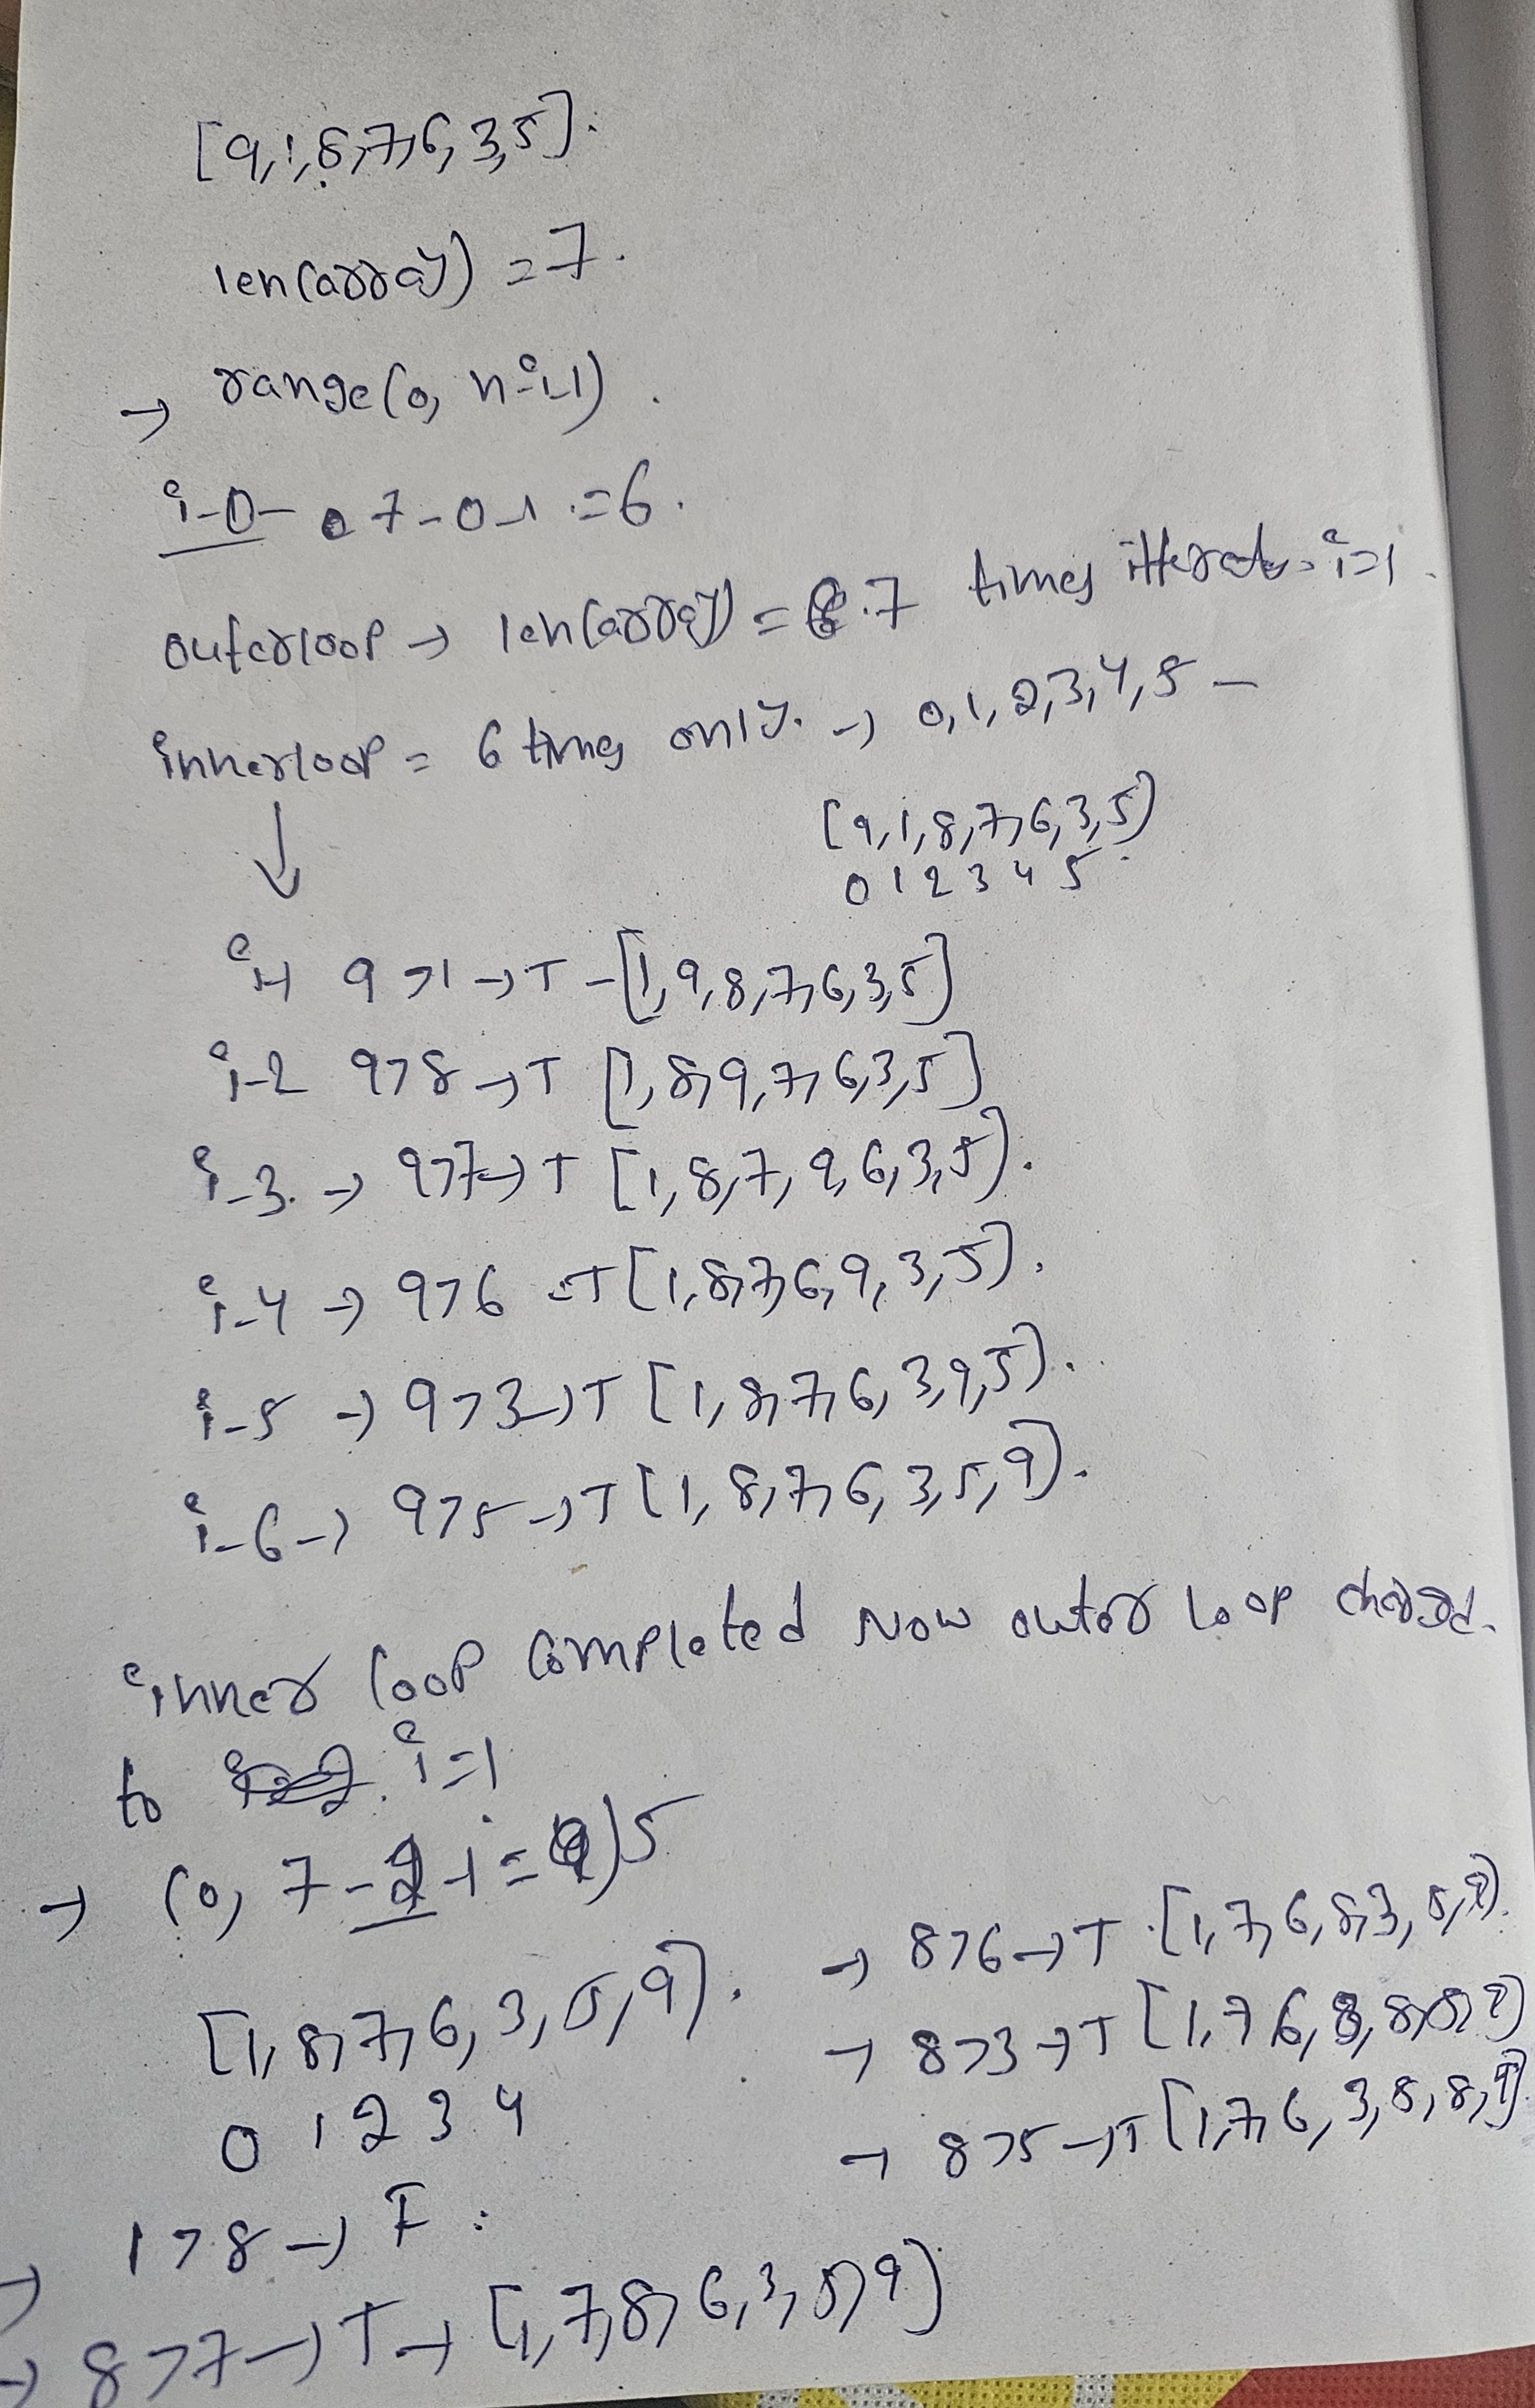 [9,1,8,7,6,3,5].
len(array) = 7.
→ range(0, n-i-1).
i-0- 0 7-0-1 = 6.
outerloop → len(array) = 7 times itterate. i=1.
innerloop = 6 times only. → 0,1,2,3,4,5 -
↓
[9,1,8,7,6,3,5)
0 1 2 3 4 5
i-1 9>1→T-[1,9,8,7,6,3,5]
i-2 9>8→T [1,8,9,7,6,3,5]
i-3. → 9>7→T [1,8,7,9,6,3,5).
i-4 → 9>6 →T[1,8,7,6,9,3,5).
i-5 → 9>3→T [1,8,7,6,3,9,5).
i-6→ 9>5→T [1,8,7,6,3,5,9).
inner loop completed Now outer loop
to i=1
→ (0, 7-1-1= )5
[1,8,7,6,3,5,9).
0 1 2 3 4
→ 1>8→ F.
→ 8>7→T→ [1,7,8,6,3,5,9)
→ 8>6→T.[1,7,6,8,3,5,9).
→ 8>3→T [1,7,6,3,8,5,9)
→ 8>5→T [1,7,6,3,5,8,9).